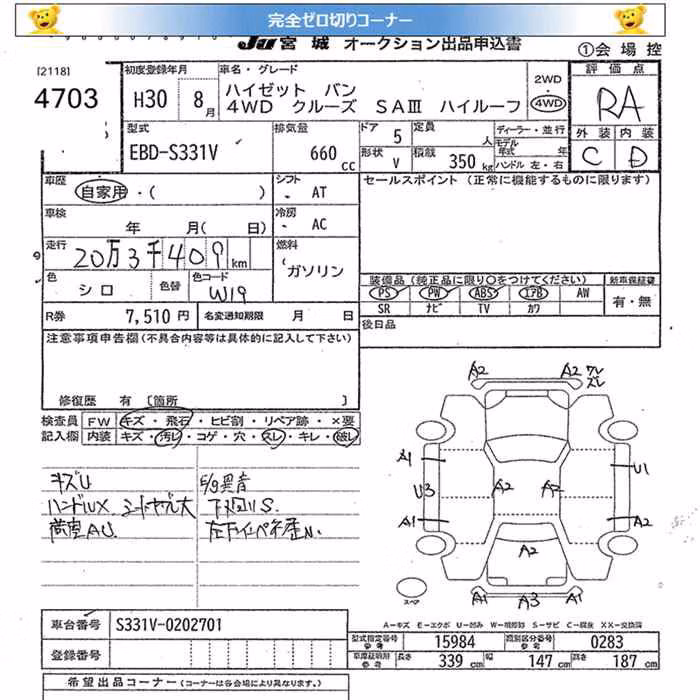 完全ゼロ切りコーナー
JU宮城 オークション出品申込書 ①会場控
[2118]
4703
初度登録年月
H30 8月
車名・グレード
ハイゼット バン
4WD クルーズ SAⅢ ハイルーフ
2WD
4WD
評価点
RA
外装 内装
C D
型式
EBD-S331V
排気量
660 CC
ドア 5
定員 人
形状 V
積載 350 kg
ディーラー・並行
モデル年式 年
ハンドル 左・右
車歴
自家用・( )
シフト
AT
セールスポイント (正常に機能するものに限ります)
車検
年 月( 日)
冷房
AC
走行
20万3千409km
燃料
ガソリン
色
シロ
色替
色コード
W19
装備品 (純正品に限り○をつけてください)
PS PW ABS エアB AW
SR ナビ TV カワ
新車保証書
有・無
R券 7,510円
名変通知期限 月 日
後日品
注意事項申告欄(不具合内容等は具体的に記入して下さい)
修復歴 有 [箇所 ]
検査員 FW キズ・飛石・ヒビ割・リペア跡・×要
記入欄 内装 キズ・汚レ・コゲ・穴・スレ・キレ・破レ
キズU
ハンドルX シートヤブレ大
荷室AU
下回りS
A2 A2 ワレ
ズレ
A1 U1
U3 A2
A1 A2
A2
A1 A3 A1
スペア
車台番号 S331V-0202701
登録番号
A−キズ E−エクボ U−凹み W−補修跡 S−サビ C−腐食 XX−交換済
型式指定番号 参考 15984 類別区分番号 参考 0283
車庫証明用 参考 長さ 339 cm 幅 147 cm 高さ 187 cm
希望出品コーナー (コーナーは各会場により異なります。)